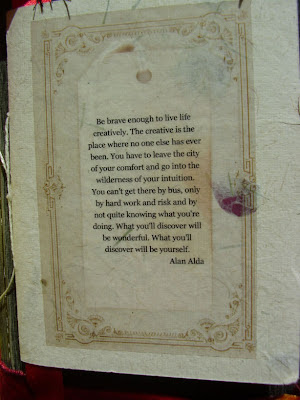 Be brave enough to live life
creatively. The creative is the
place where no one else has ever
been. You have to leave the city
of your comfort and go into the
wilderness of your intuition.
You can't get there by bus, only
by hard work and risk and by
not quite knowing what you're
doing. What you'll discover will
be wonderful. What you'll
discover will be yourself.
Alan Alda